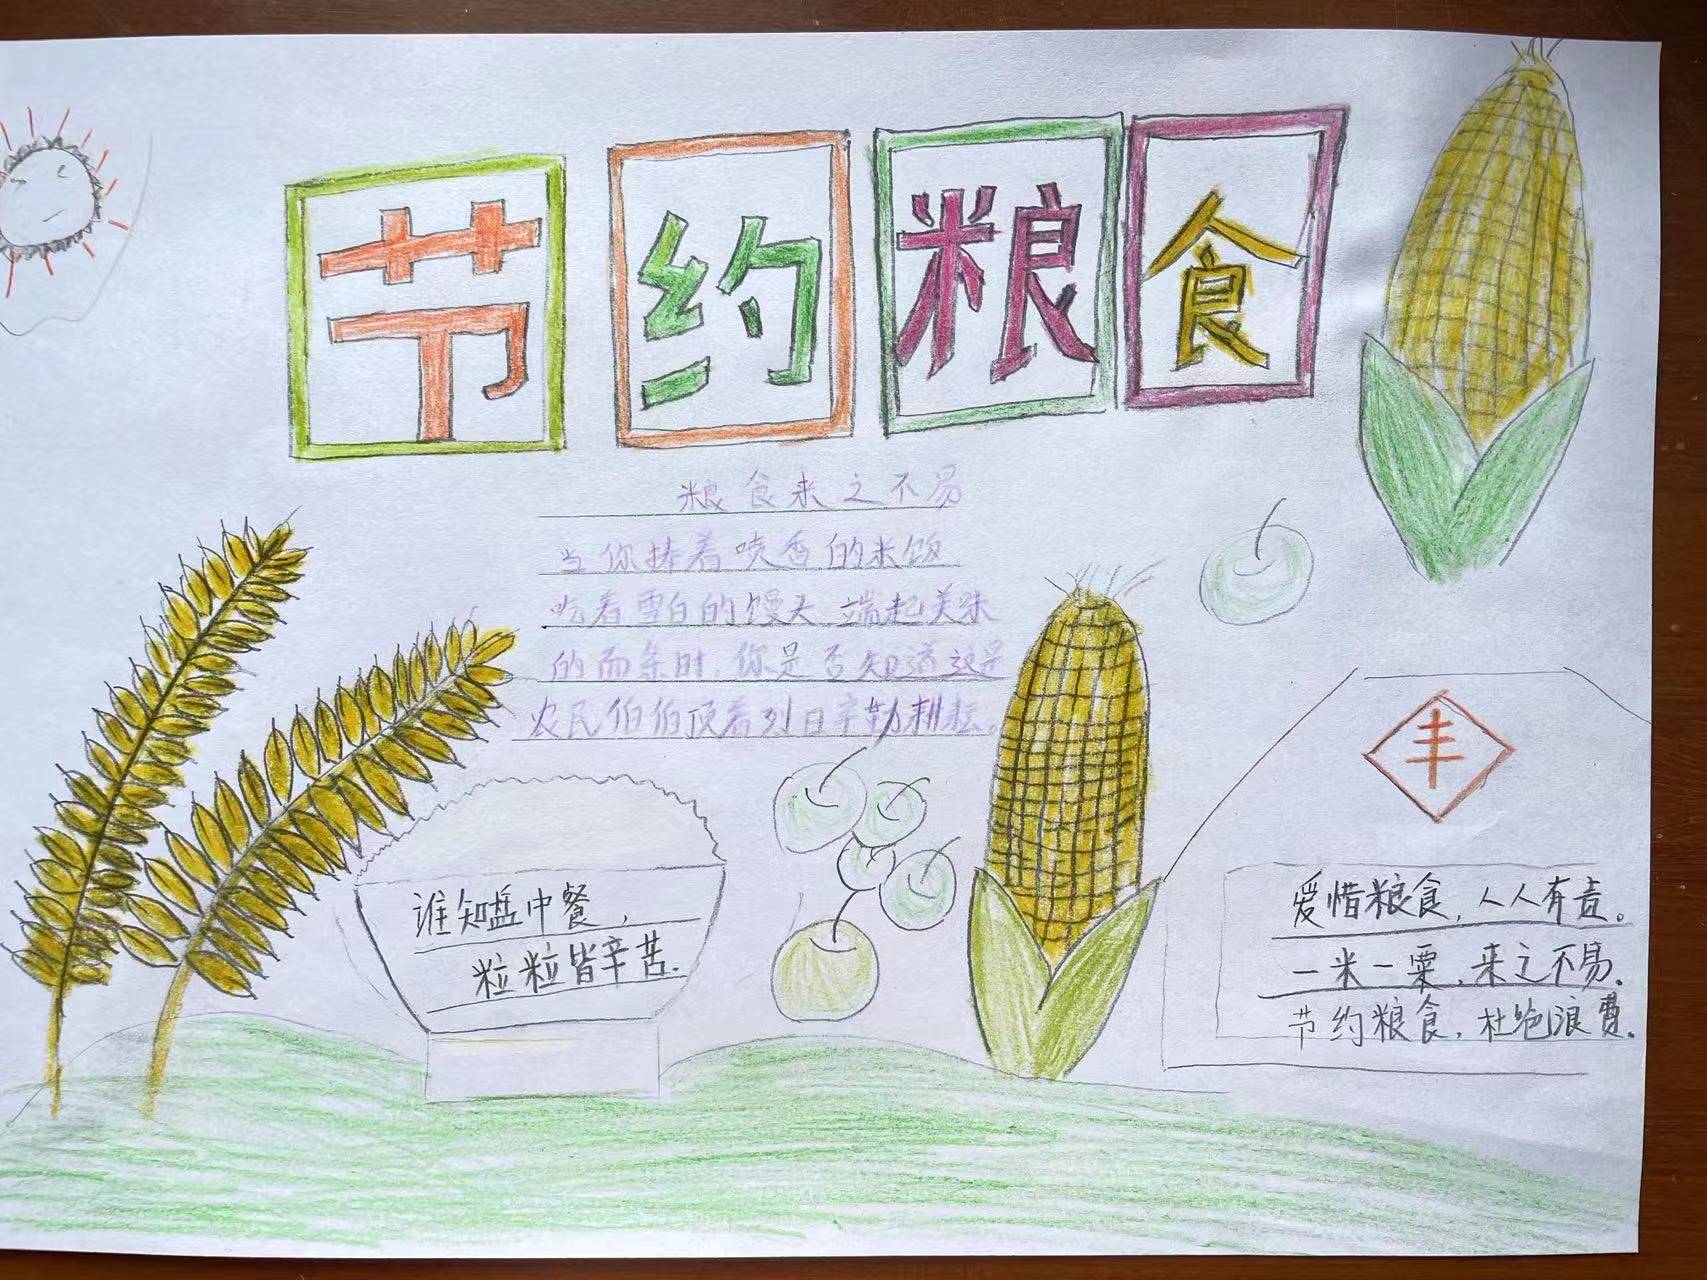 节约粮食
粮食来之不易
当你捧着喷香的米饭
吃着雪白的馒头,端起美味
的面条时,你是否知道这是
农民伯伯顶着烈日辛勤耕耘。
谁知盘中餐,
粒粒皆辛苦.
丰
爱惜粮食,人人有责。
一米一粟,来之不易.
节约粮食,杜绝浪费.